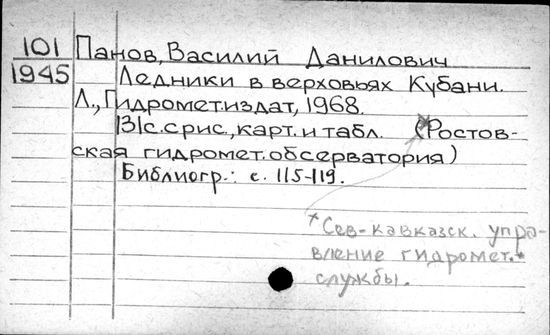 101 Панов, Василий Данилович
1945 Ледники в верховьях Кубани.
Л., Гидрометиздат, 1968.
131с. с рис., карт. и табл. (*Ростов-
ская гидромет. обсерватория)
Библиогр.: с. 115-119.
*Сев-кавказск. упра-
вление гидромет.*
службы.